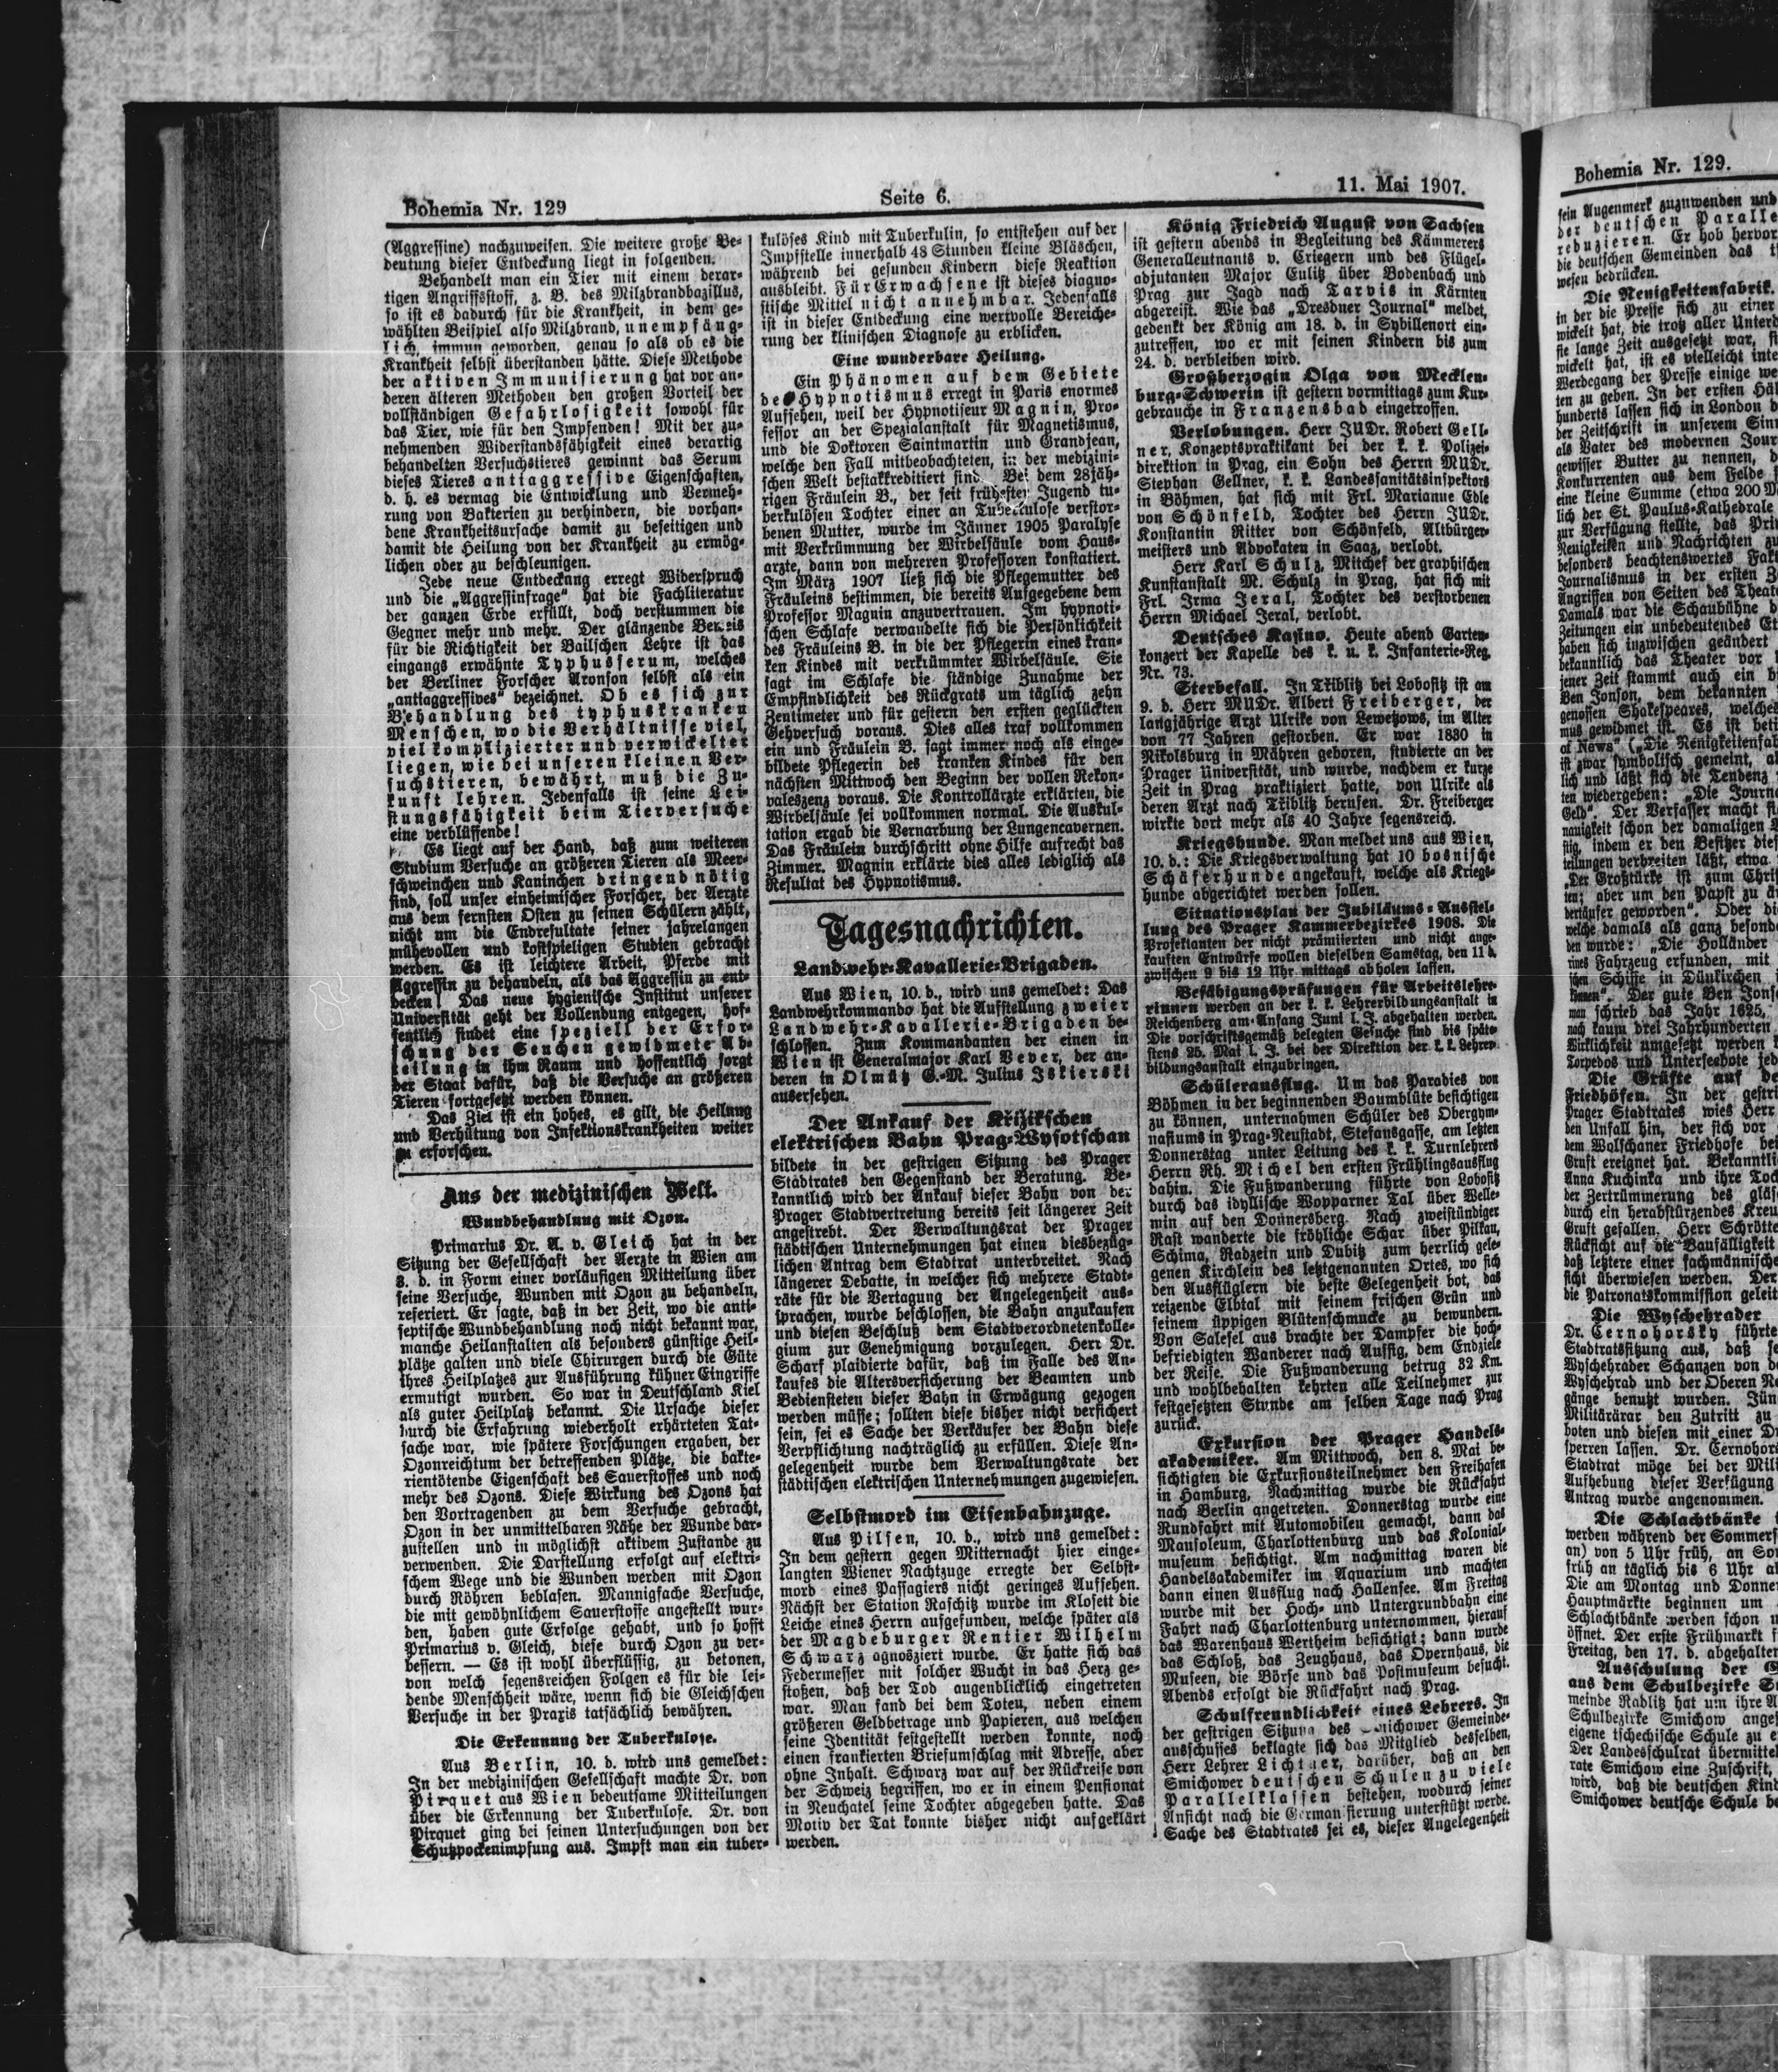 Bohemia Nr. 129
Seite 6.
11. Mai 1907.
(Aggressine) nachzuweisen. Die weitere große Be-
deutung dieser Entdeckung liegt in folgenden.
Behandelt man ein Tier mit einem derar-
tigen Angriffsstoff, z. B. des Milzbrandbazillus,
so ist es dadurch für die Krankheit, in dem ge-
wählten Beispiel also Milzbrand, unempfäng-
lich, immun geworden, genau so als ob es die
Krankheit selbst überstanden hätte. Diese Methode
der aktiven Immunisierung hat vor an-
deren älteren Methoden den großen Vorteil der
vollständigen Gefahrlosigkeit sowohl für
das Tier, wie für den Impfenden! Mit der zu-
nehmenden Widerstandsfähigkeit eines derartig
behandelten Versuchstieres gewinnt das Serum
dieses Tieres antiaggressive Eigenschaften,
d. h. es vermag die Entwicklung und Vermeh-
rung von Bakterien zu verhindern, die vorhan-
dene Krankheitsursache damit zu beseitigen und
damit die Heilung von der Krankheit zu ermög-
lichen oder zu beschleunigen.
Jede neue Entdeckung erregt Widerspruch
und die „Aggressinfrage“ hat die Fachliteratur
der ganzen Erde erfüllt, doch verstummen die
Gegner mehr und mehr. Der glänzende Beweis
für die Richtigkeit der Bailschen Lehre ist das
eingangs erwähnte Typhusserum, welches
der Berliner Forscher Aronson selbst als ein
„antiaggressives“ bezeichnet. Ob es sich zur
Behandlung des typhuskranken
Menschen, wo die Verhältnisse viel,
viel komplizierter und verwickelter
liegen, wie bei unseren kleinen Ver-
suchstieren, bewährt, muß die Zu-
kunft lehren. Jedenfalls ist seine Lei-
stungsfähigkeit beim Tierversuche
eine verblüffende!
Es liegt auf der Hand, daß zum weiteren
Studium Versuche an größeren Tieren als Meer-
schweinchen und Kaninchen dringend nötig
sind, soll unser einheimischer Forscher, der Aerzte
aus dem fernsten Osten zu seinen Schülern zählt,
nicht um die Endresultate seiner jahrelangen
mühevollen und kostspieligen Studien gebracht
werden. Es ist leichtere Arbeit, Pferde mit
Aggressin zu behandeln, als das Aggressin zu ent-
decken! Das neue hygienische Institut unserer
Universität geht der Vollendung entgegen, hof-
fentlich findet eine speziell der Erfor-
schung der Seuchen gewidmete Ab-
teilung in ihm Raum und hoffentlich sorgt
der Staat dafür, daß die Versuche an größeren
Tieren fortgesetzt werden können.
Das Ziel ist ein hohes, es gilt, die Heilung
und Verhütung von Infektionskrankheiten weiter
zu erforschen.
Aus der medizinischen Welt.
Wundbehandlung mit Ozon.
Primarius Dr. A. v. Gleich hat in der
Sitzung der Gesellschaft der Aerzte in Wien am
8. d. in Form einer vorläufigen Mitteilung über
seine Versuche, Wunden mit Ozon zu behandeln,
referiert. Er sagte, daß in der Zeit, wo die anti-
septische Wundbehandlung noch nicht bekannt war,
manche Heilanstalten als besonders günstige Heil-
plätze galten und viele Chirurgen durch die Güte
ihres Heilplatzes zur Ausführung kühner Eingriffe
ermutigt wurden. So war in Deutschland Kiel
als guter Heilplatz bekannt. Die Ursache dieser
durch die Erfahrung wiederholt erhärteten Tat-
sache war, wie spätere Forschungen ergaben, der
Ozonreichtum der betreffenden Plätze, die bakte-
rientötende Eigenschaft des Sauerstoffes und noch
mehr des Ozons. Diese Wirkung des Ozons hat
den Vortragenden zu dem Versuche gebracht,
Ozon in der unmittelbaren Nähe der Wunde dar-
zustellen und in möglichst aktivem Zustande zu
verwenden. Die Darstellung erfolgt auf elektri-
schem Wege und die Wunden werden mit Ozon
durch Röhren beblasen. Mannigfache Versuche,
die mit gewöhnlichem Sauerstoffe angestellt wur-
den, haben gute Erfolge gehabt, und so hofft
Primarius v. Gleich, diese durch Ozon zu ver-
bessern. — Es ist wohl überflüssig, zu betonen,
von welch segensreichen Folgen es für die lei-
dende Menschheit wäre, wenn sich die Gleichschen
Versuche in der Praxis tatsächlich bewähren.
Die Erkennung der Tuberkulose.
Aus Berlin, 10. d. wird uns gemeldet:
In der medizinischen Gesellschaft machte Dr. von
Pirquet aus Wien bedeutsame Mitteilungen
über die Erkennung der Tuberkulose. Dr. von
Pirquet ging bei seinen Untersuchungen von der
Schutzpockenimpfung aus. Impft man ein tuber-
kulöses Kind mit Tuberkulin, so entstehen auf der
Impfstelle innerhalb 48 Stunden kleine Bläschen,
während bei gesunden Kindern diese Reaktion
ausbleibt. Für Erwachsene ist dieses diagno-
stische Mittel nicht annehmbar. Jedenfalls
ist in dieser Entdeckung eine wertvolle Bereiche-
rung der klinischen Diagnose zu erblicken.
Eine wunderbare Heilung.
Ein Phänomen auf dem Gebiete
des Hypnotismus erregt in Paris enormes
Aufsehen, weil der Hypnotiseur Magnin, Pro-
fessor an der Spezialanstalt für Magnetismus,
und die Doktoren Saintmartin und Grandjean,
welche den Fall mitbeobachteten, in der medizini-
schen Welt bestakkreditiert sind. Bei dem 28jäh-
rigen Fräulein B., der seit frühester Jugend tu-
berkulösen Tochter einer an Tuberkulose verstor-
benen Mutter, wurde im Jänner 1905 Paralyse
mit Verkrümmung der Wirbelsäule vom Haus-
arzte, dann von mehreren Professoren konstatiert.
Im März 1907 ließ sich die Pflegemutter des
Fräuleins bestimmen, die bereits Aufgegebene dem
Professor Magnin anzuvertrauen. Im hypnoti-
schen Schlafe verwandelte sich die Persönlichkeit
des Fräuleins B. in die der Pflegerin eines kran-
ken Kindes mit verkrümmter Wirbelsäule. Sie
sagt im Schlafe die ständige Zunahme der
Empfindlichkeit des Rückgrats um täglich zehn
Zentimeter und für gestern den ersten geglückten
Gehversuch voraus. Dies alles traf vollkommen
ein und Fräulein B. sagt immer noch als einge-
bildete Pflegerin des kranken Kindes für den
nächsten Mittwoch den Beginn der vollen Rekon-
valeszenz voraus. Die Kontrollärzte erklärten, die
Wirbelsäule sei vollkommen normal. Die Auskul-
tation ergab die Vernarbung der Lungencavernen.
Das Fräulein durchschritt ohne Hilfe aufrecht das
Zimmer. Magnin erklärte dies alles lediglich als
Resultat des Hypnotismus.
Tagesnachrichten.
Landwehr-Kavallerie-Brigaden.
Aus Wien, 10. d., wird uns gemeldet: Das
Landwehrkommando hat die Aufstellung zweier
Landwehr-Kavallerie-Brigaden be-
schlossen. Zum Kommandanten der einen in
Wien ist Generalmajor Karl Bever, der an-
deren in Olmütz G.-M. Julius Iskierski
ausersehen.
Der Ankauf der Křižikschen
elektrischen Bahn Prag-Wysotschan
bildete in der gestrigen Sitzung des Prager
Stadtrates den Gegenstand der Beratung. Be-
kanntlich wird der Ankauf dieser Bahn von der
Prager Stadtvertretung bereits seit längerer Zeit
angestrebt. Der Verwaltungsrat der Prager
städtischen Unternehmungen hat einen diesbezüg-
lichen Antrag dem Stadtrat unterbreitet. Nach
längerer Debatte, in welcher sich mehrere Stadt-
räte für die Vertagung der Angelegenheit aus-
sprachen, wurde beschlossen, die Bahn anzukaufen
und diesen Beschluß dem Stadtverordnetenkolle-
gium zur Genehmigung vorzulegen. Herr Dr.
Scharf plaidierte dafür, daß im Falle des An-
kaufes die Altersversicherung der Beamten und
Bediensteten dieser Bahn in Erwägung gezogen
werden müsse; sollten diese bisher nicht versichert
sein, sei es Sache der Verkäufer der Bahn diese
Verpflichtung nachträglich zu erfüllen. Diese An-
gelegenheit wurde dem Verwaltungsrate der
städtischen elektrischen Unternehmungen zugewiesen.
Selbstmord im Eisenbahnzuge.
Aus Pilsen, 10. d., wird uns gemeldet:
In dem gestern gegen Mitternacht hier einge-
langten Wiener Nachtzuge erregte der Selbst-
mord eines Passagiers nicht geringes Aufsehen.
Nächst der Station Raschitz wurde im Klosett die
Leiche eines Herrn aufgefunden, welche später als
der Magdeburger Rentier Wilhelm
Schwarz agnosziert wurde. Er hatte sich das
Federmesser mit solcher Wucht in das Herz ge-
stoßen, daß der Tod augenblicklich eingetreten
war. Man fand bei dem Toten, neben einem
größeren Geldbetrage und Papieren, aus welchen
seine Identität festgestellt werden konnte, noch
einen frankierten Briefumschlag mit Adresse, aber
ohne Inhalt. Schwarz war auf der Rückreise von
der Schweiz begriffen, wo er in einem Pensionat
in Neuchatel seine Tochter abgegeben hatte. Das
Motiv der Tat konnte bisher nicht aufgeklärt
werden.
König Friedrich August von Sachsen
ist gestern abends in Begleitung des Kämmerers
Generalleutnants v. Criegern und des Flügel-
adjutanten Major Eulitz über Bodenbach und
Prag zur Jagd nach Tarvis in Kärnten
abgereist. Wie das „Dresdner Journal“ meldet,
gedenkt der König am 18. d. in Sybillenort ein-
zutreffen, wo er mit seinen Kindern bis zum
24. d. verbleiben wird.
Großherzogin Olga von Mecklen-
burg-Schwerin ist gestern vormittags zum Kur-
gebrauche in Franzensbad eingetroffen.
Verlobungen. Herr JUDr. Robert Gell-
ner, Konzeptspraktikant bei der k. k. Polizei-
direktion in Prag, ein Sohn des Herrn MUDr.
Stephan Gellner, k. k. Landessanitätsinspektors
in Böhmen, hat sich mit Frl. Marianne Edle
von Schönfeld, Tochter des Herrn JUDr.
Konstantin Ritter von Schönfeld, Altbürger-
meisters und Advokaten in Saaz, verlobt.
Herr Karl Schulz, Mitchef der graphischen
Kunstanstalt M. Schulz in Prag, hat sich mit
Frl. Irma Jeral, Tochter des verstorbenen
Herrn Michael Jeral, verlobt.
Deutsches Kasino. Heute abend Garten-
konzert der Kapelle des k. u. k. Infanterie-Reg.
Nr. 73.
Sterbefall. In Třiblitz bei Lobositz ist am
9. d. Herr MUDr. Albert Freiberger, der
langjährige Arzt Ulrike von Lewetzows, im Alter
von 77 Jahren gestorben. Er war 1830 in
Nikolsburg in Mähren geboren, studierte an der
Prager Universität, und wurde, nachdem er kurze
Zeit in Prag praktiziert hatte, von Ulrike als
deren Arzt nach Třiblitz berufen. Dr. Freiberger
wirkte dort mehr als 40 Jahre segensreich.
Kriegshunde. Man meldet uns aus Wien,
10. d.: Die Kriegsverwaltung hat 10 bosnische
Schäferhunde angekauft, welche als Kriegs-
hunde abgerichtet werden sollen.
Situationsplan der Jubiläums-Ausstel-
lung des Prager Kammerbezirkes 1908. Die
Projektanten der nicht prämiierten und nicht ange-
kauften Entwürfe wollen dieselben Samstag, den 11 d.
zwischen 9 bis 12 Uhr mittags abholen lassen.
Befähigungsprüfungen für Arbeitslehre-
rinnen werden an der k. k. Lehrerbildungsanstalt in
Reichenberg am Anfang Juni l. J. abgehalten werden.
Die vorschriftsgemäß belegten Gesuche sind bis späte-
stens 25. Mai l. J. bei der Direktion der k. k. Lehrer-
bildungsanstalt einzubringen.
Schülerausflug. Um das Paradies von
Böhmen in der beginnenden Baumblüte besichtigen
zu können, unternahmen Schüler des Obergym-
nasiums in Prag-Neustadt, Stefansgasse, am letzten
Donnerstag unter Leitung des k. k. Turnlehrers
Herrn Rh. Michel den ersten Frühlingsausflug
dahin. Die Fußwanderung führte von Lobositz
durch das idyllische Wopparner Tal über Welle-
min auf den Donnersberg. Nach zweistündiger
Rast wanderte die fröhliche Schar über Pilkau,
Schima, Radzein und Dubitz zum herrlich gele-
genen Kirchlein des letztgenannten Ortes, wo sich
den Ausflüglern die beste Gelegenheit bot, das
reizende Elbtal mit seinem frischen Grün und
seinem üppigen Blütenschmucke zu bewundern.
Von Salesel aus brachte der Dampfer die hoch-
befriedigten Wanderer nach Aussig, dem Endziele
der Reise. Die Fußwanderung betrug 32 Km.
und wohlbehalten kehrten alle Teilnehmer zur
festgesetzten Stunde am selben Tage nach Prag
zurück.
Exkursion der Prager Handels-
akademiker. Am Mittwoch, den 8. Mai be-
sichtigten die Exkursionsteilnehmer den Freihafen
in Hamburg, Nachmittag wurde die Rückfahrt
nach Berlin angetreten. Donnerstag wurde eine
Rundfahrt mit Automobilen gemacht, dann das
Mausoleum, Charlottenburg und das Kolonial-
museum besichtigt. Am nachmittag waren die
Handelsakademiker im Aquarium und machten
dann einen Ausflug nach Hallensee. Am Freitag
wurde mit der Hoch- und Untergrundbahn eine
Fahrt nach Charlottenburg unternommen, hierauf
das Warenhaus Wertheim besichtigt; dann wurde
das Schloß, das Zeughaus, das Opernhaus, die
Museen, die Börse und das Postmuseum besucht.
Abends erfolgt die Rückfahrt nach Prag.
Schulfreundlichkeit eines Lehrers. In
der gestrigen Sitzung des Smichower Gemeinde-
ausschusses beklagte sich das Mitglied desselben,
Herr Lehrer Lichtner, darüber, daß an den
Smichower deutschen Schulen zu viele
Parallelklassen bestehen, wodurch seiner
Ansicht nach die Germanisierung unterstützt werde.
Sache des Stadtrates sei es, dieser Angelegenheit
Bohemia Nr. 129.
sein Augenmerk zuzuwenden und
der deutschen Paralle
reduzieren. Er hob hervor
die deutschen Gemeinden das
wesen bedrücken.
Die Neuigkeitenfabrik.
in der die Presse sich zu einer
wickelt hat, die trotz aller Unterd
sie lange Zeit ausgesetzt war,
wickelt hat, ist es vielleicht inte
Werdegang der Presse einige we
ten zu geben. In der ersten Häl
hunderts lassen sich in London
der Zeitschrift in unserem Sinn
als Vater des modernen Jour
gewisser Butter zu nennen,
Konkurrenten aus dem Felde
eine kleine Summe (etwa 200 M
lich der St. Paulus-Kathedrale
zur Verfügung stellte, das Pri
Neuigkeiten und Nachrichten zu
besonders beachtenswertes Fak
Journalismus in der ersten Z
Angriffen von Seiten des Theat
Damals war die Schaubühne
Zeitungen ein unbedeutendes Et
haben sich inzwischen geändert
bekanntlich das Theater vor
jener Zeit stammt auch ein
Ben Jonson, dem bekannten
genossen Shakespeares, welches
mus gewidmet ist. Es ist beti
of News“ („Die Neuigkeitenfab
ist zwar symbolisch gemeint,
lich und läßt sich die Tendenz
ten wiedergeben: „Die Journa
Geld“. Der Verfasser macht
nauigkeit schon der damaligen
stig, indem er den Besitzer dies
teilungen verbreiten läßt, etwa
„Der Großtürke ist zum Chris
ten; aber um den Papst zu
bertäufer geworden“. Oder
welche damals als ganz besond
den wurde: „Die Holländer
eines Fahrzeug erfunden, mit
schen Schiffe in Dünkirchen
können“. Der gute Ben Jons
man schrieb das Jahr 1625,
nach kaum drei Jahrhunderten
Wirklichkeit umgesetzt werden
Torpedos und Unterseebote jed
Die Grüfte auf de
Friedhöfen. In der gestri
Prager Stadtrates wies Herr
den Unfall hin, der sich vor
dem Wolschaner Friedhofe bei
Gruft ereignet hat. Bekanntli
Anna Kuchinka und ihre Toc
der Zertrümmerung des gläs
durch ein herabstürzendes Kreu
Gruft gefallen. Herr Schrötte
Rücksicht auf die Baufälligkeit
daß letztere einer fachmännische
sicht überwiesen werden. Der
die Patronatskommission geleit
Die Wyschehrader
Dr. Cernohorsky führte
Stadtratssitzung aus, daß
Wyschehrader Schanzen von
Wyschehrad und der Oberen Ne
gänge benutzt wurden. Jün
Militärärar den Zutritt zu
boten und diesen mit einer
sperren lassen. Dr. Cernohor
Stadtrat möge bei der Mili
Aufhebung dieser Verfügung
Antrag wurde angenommen.
Die Schlachtbänke
werden während der Sommers
an) von 5 Uhr früh, an So
früh an täglich bis 6 Uhr
Die am Montag und Donner
Hauptmärkte beginnen um
Schlachtbänke werden schon
öffnet. Der erste Frühmarkt
Freitag, den 17. d. abgehalten
Ausschulung der
aus dem Schulbezirke
meinde Radlitz hat um ihre A
Schulbezirke Smichow anges
eigene tschechische Schule zu
Der Landesschulrat übermittel
rate Smichow eine Zuschrift,
wird, daß die deutschen Kind
Smichower deutsche Schule be